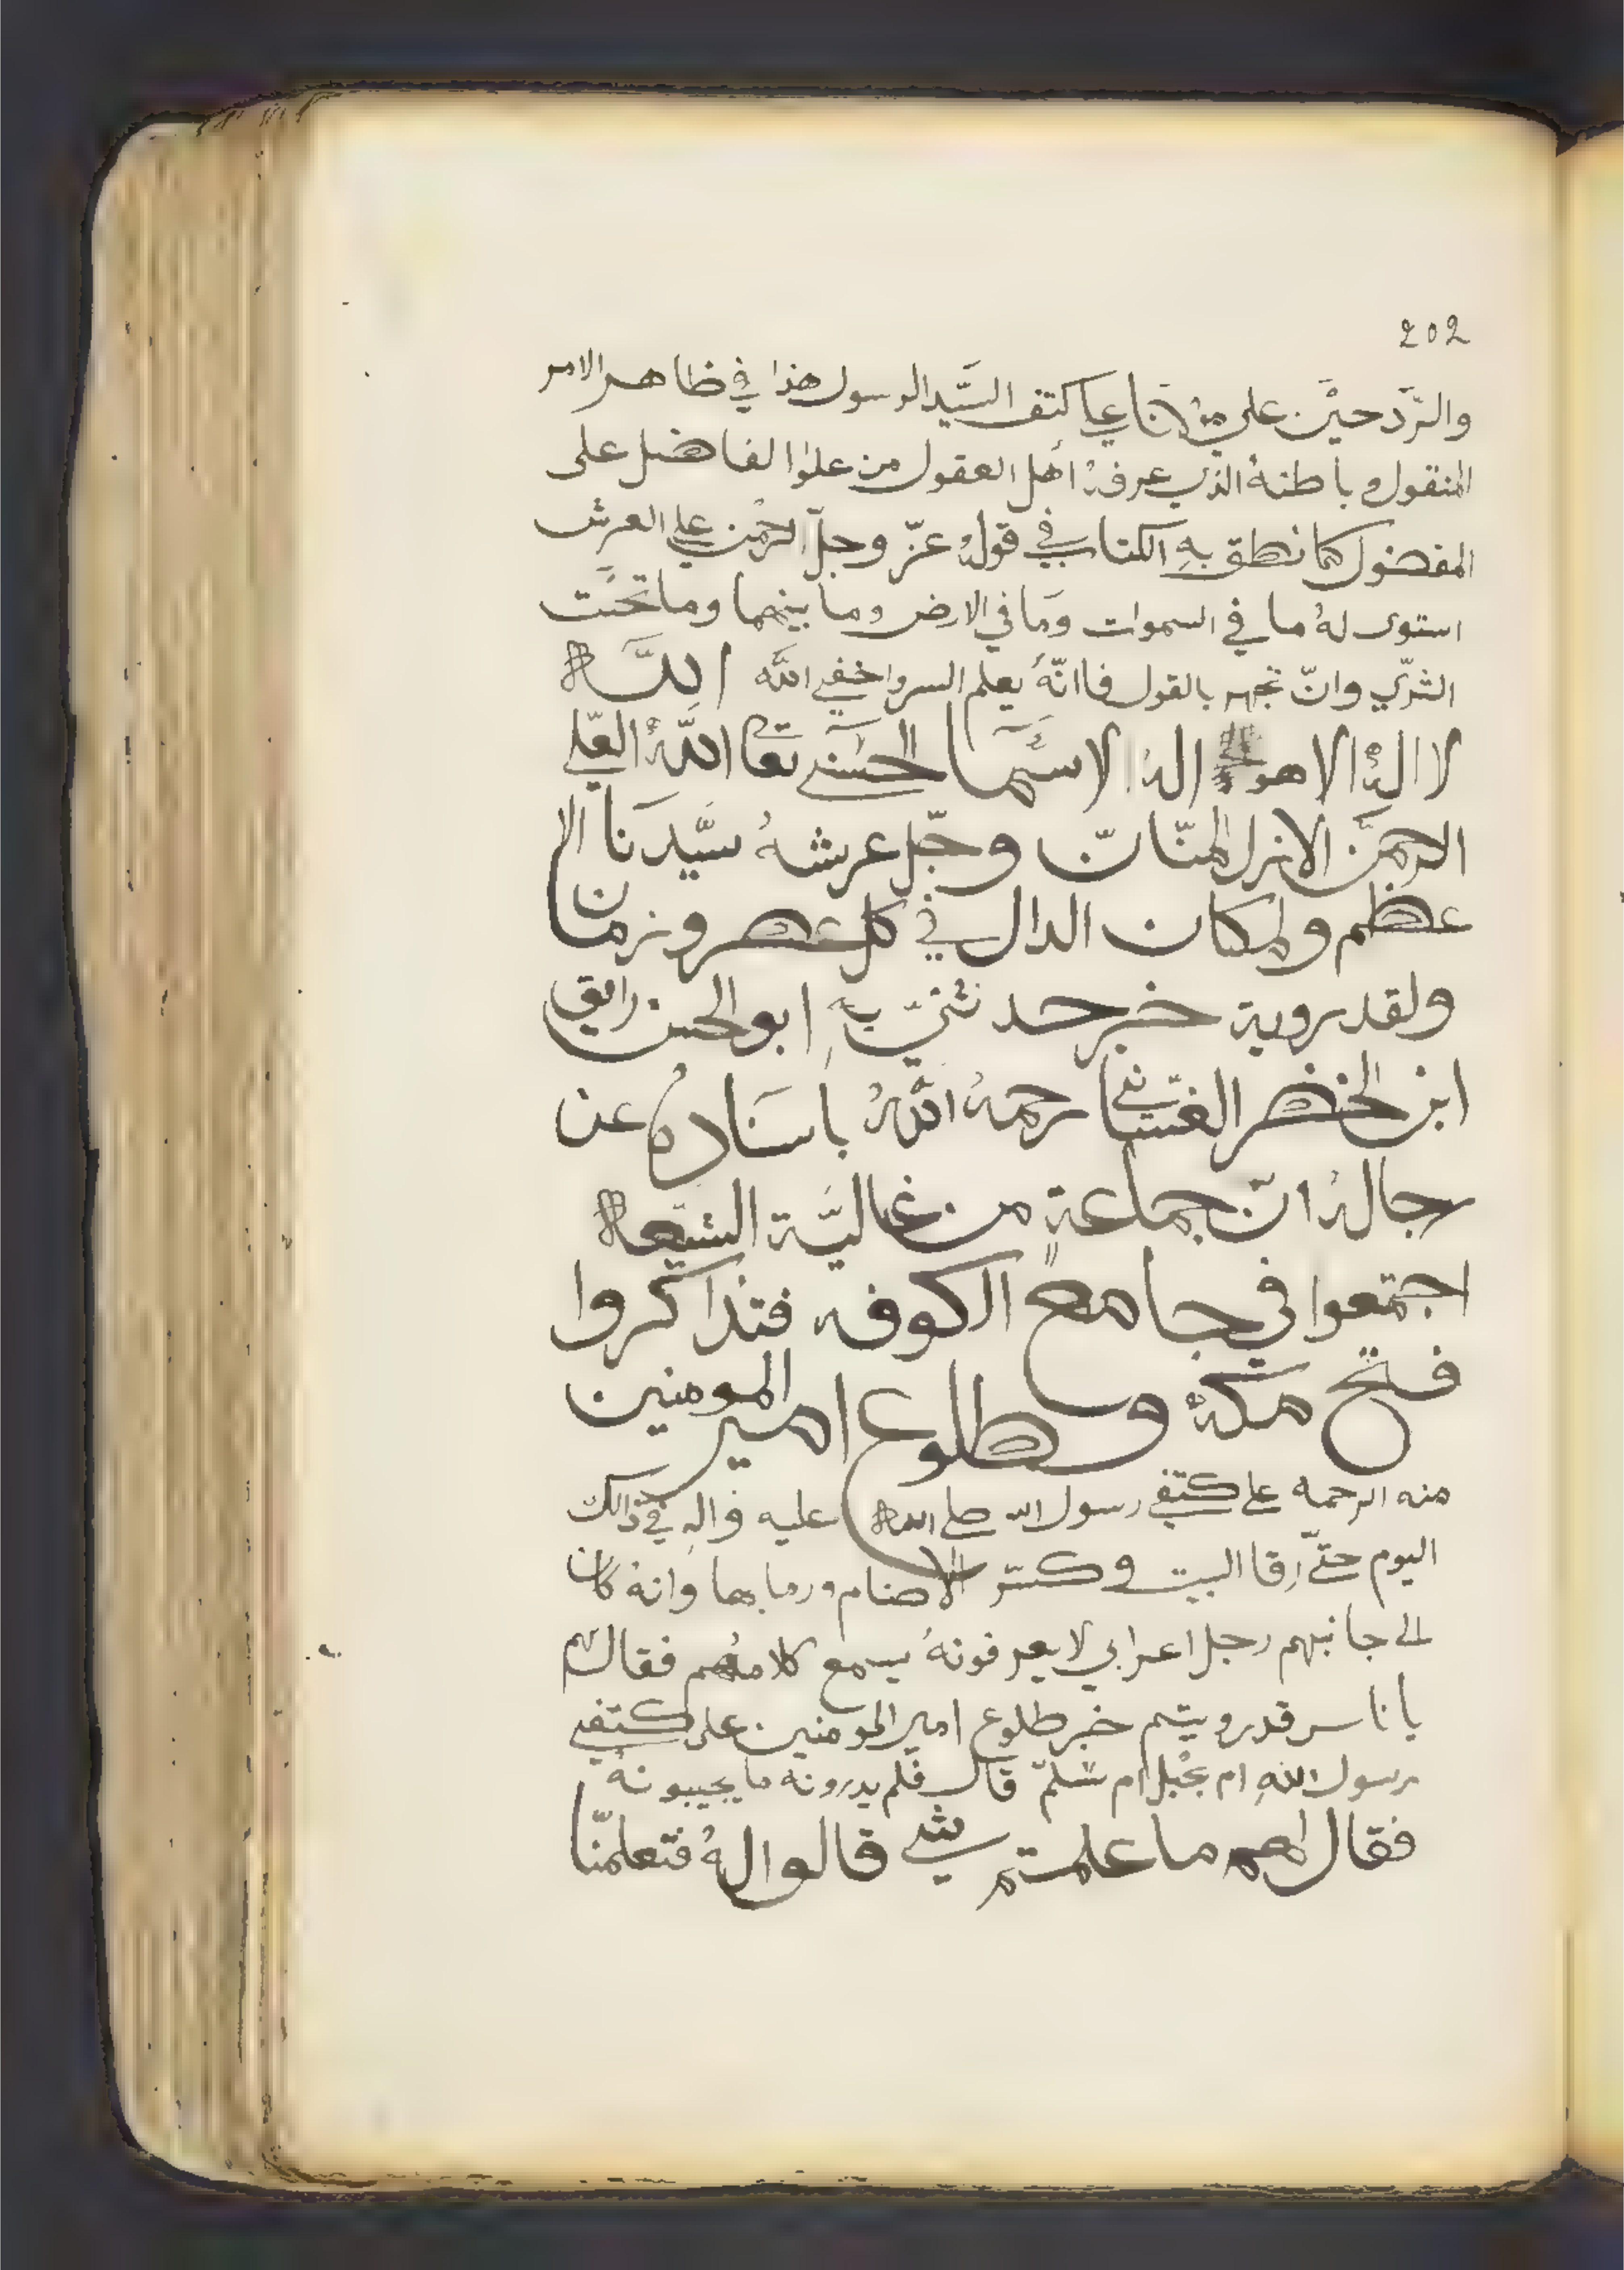 202
والرّد حين على مولانا على كتف السَّيد الرسول هذا في ظاهر الامر
المنقول و باطنهُ الذي عرفهُ اهل العقول من علوا الفاضل على
المفضول كما نطق بهِ الكتاب في قولهُ عزّ وجلّ الرحمٰن على العرش
استوى لهُ ما في السموات وَما في الارض وما بينهما وما تحَت
الثرّي وانّ تجهر بالقول فاانّهُ يعلم السر واخفي اللَّه اللَّه
لا الهُ الا هو الهُ الاسَّما الحسَني تعا اللّهُ العّلي
الرحمَن الانزل المنّانّ وجّل عرشهُ سيَّدنا الا
عظم ولمكان الدال في كل عصر وزمان
ولقد روية خبر حد ثنيّ بهِ ابو الحسن رايق
ابن الخضر الغسّاني رحمهُ اللّهُ باسنَاده عن
رجالهُ انّ جماعةٍ من غاليَّة الشيّعه
اجتمعوا في جامع الكوفه فتذاكروا
فتح مكهُ و طلوع امير المومنين
منه الرحمه على كتفي رسول الله صلى الله عليه والهِ في ذالك
اليوم حتّي رقا البيت و كسّر الاصنام و رما بها وانهُ كان
الى جانبهم رجل اعرابي لا يعرفونهُ يسمع كلامُهم فقال لهم
يا ناس قد رويتم خبر طلوع امير المومنين على كتفي
رسول اللهِ ام بحْبل ام سّلمّ قال فلم يدرونه ما يجيبونهُ
فقال لهم ما علمتم شي قالوا لهُ فتعلمّنا